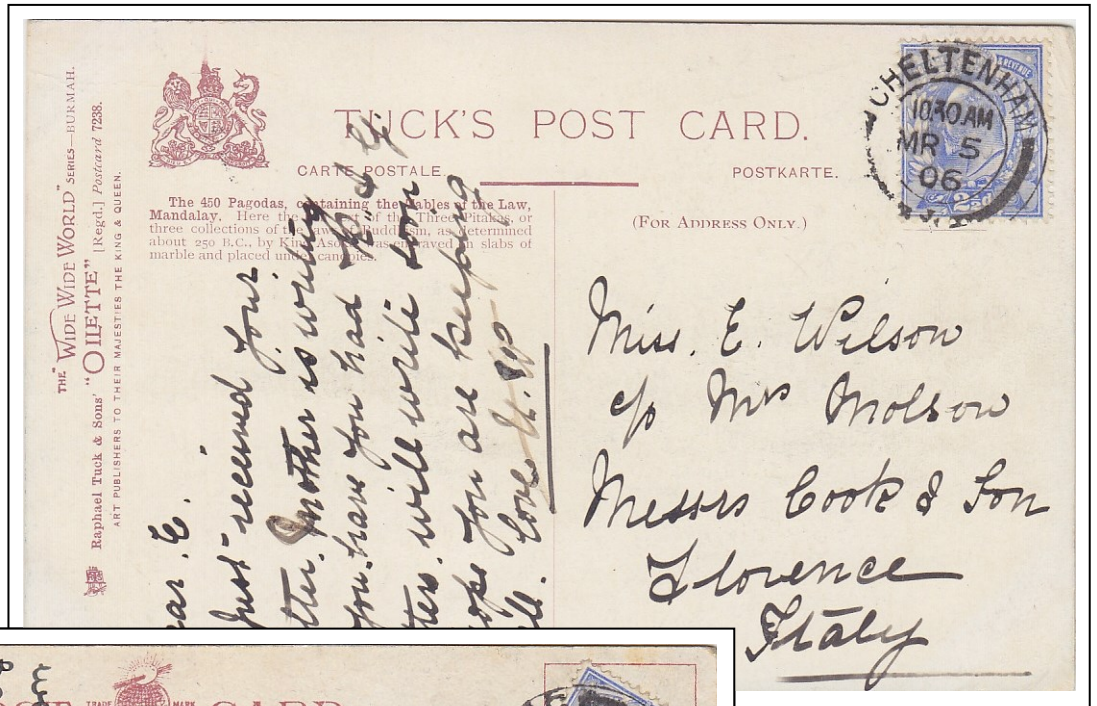 THE "WIDE WIDE WORLD" SERIES—BURMAH.
Raphael Tuck & Sons' "OILETTE" [Regd.] Postcard 7238.
ART PUBLISHERS TO THEIR MAJESTIES THE KING & QUEEN.
TUCK'S POST CARD.
CARTE POSTALE.
POSTKARTE.
The 450 Pagodas, containing the Tables of the Law,
Mandalay. Here the of the Three Pitakas, or
three collections of the laws of Buddhism, as determined
about 250 B.C., by King Asoka was engraved on slabs of
marble and placed under canopies.
(FOR ADDRESS ONLY.)
& REVENUE
CHELTENHAM
10.30 AM
MR 5
06
Miss. E. Wilson
c/o Mrs Molson
Messrs Cook & Son
Florence
Italy
ear E.
Just received your
tter. Mother is writing
you. have you had
ters. will write soon
ope you are keeping
ll. love
TRADE MARK
CARD